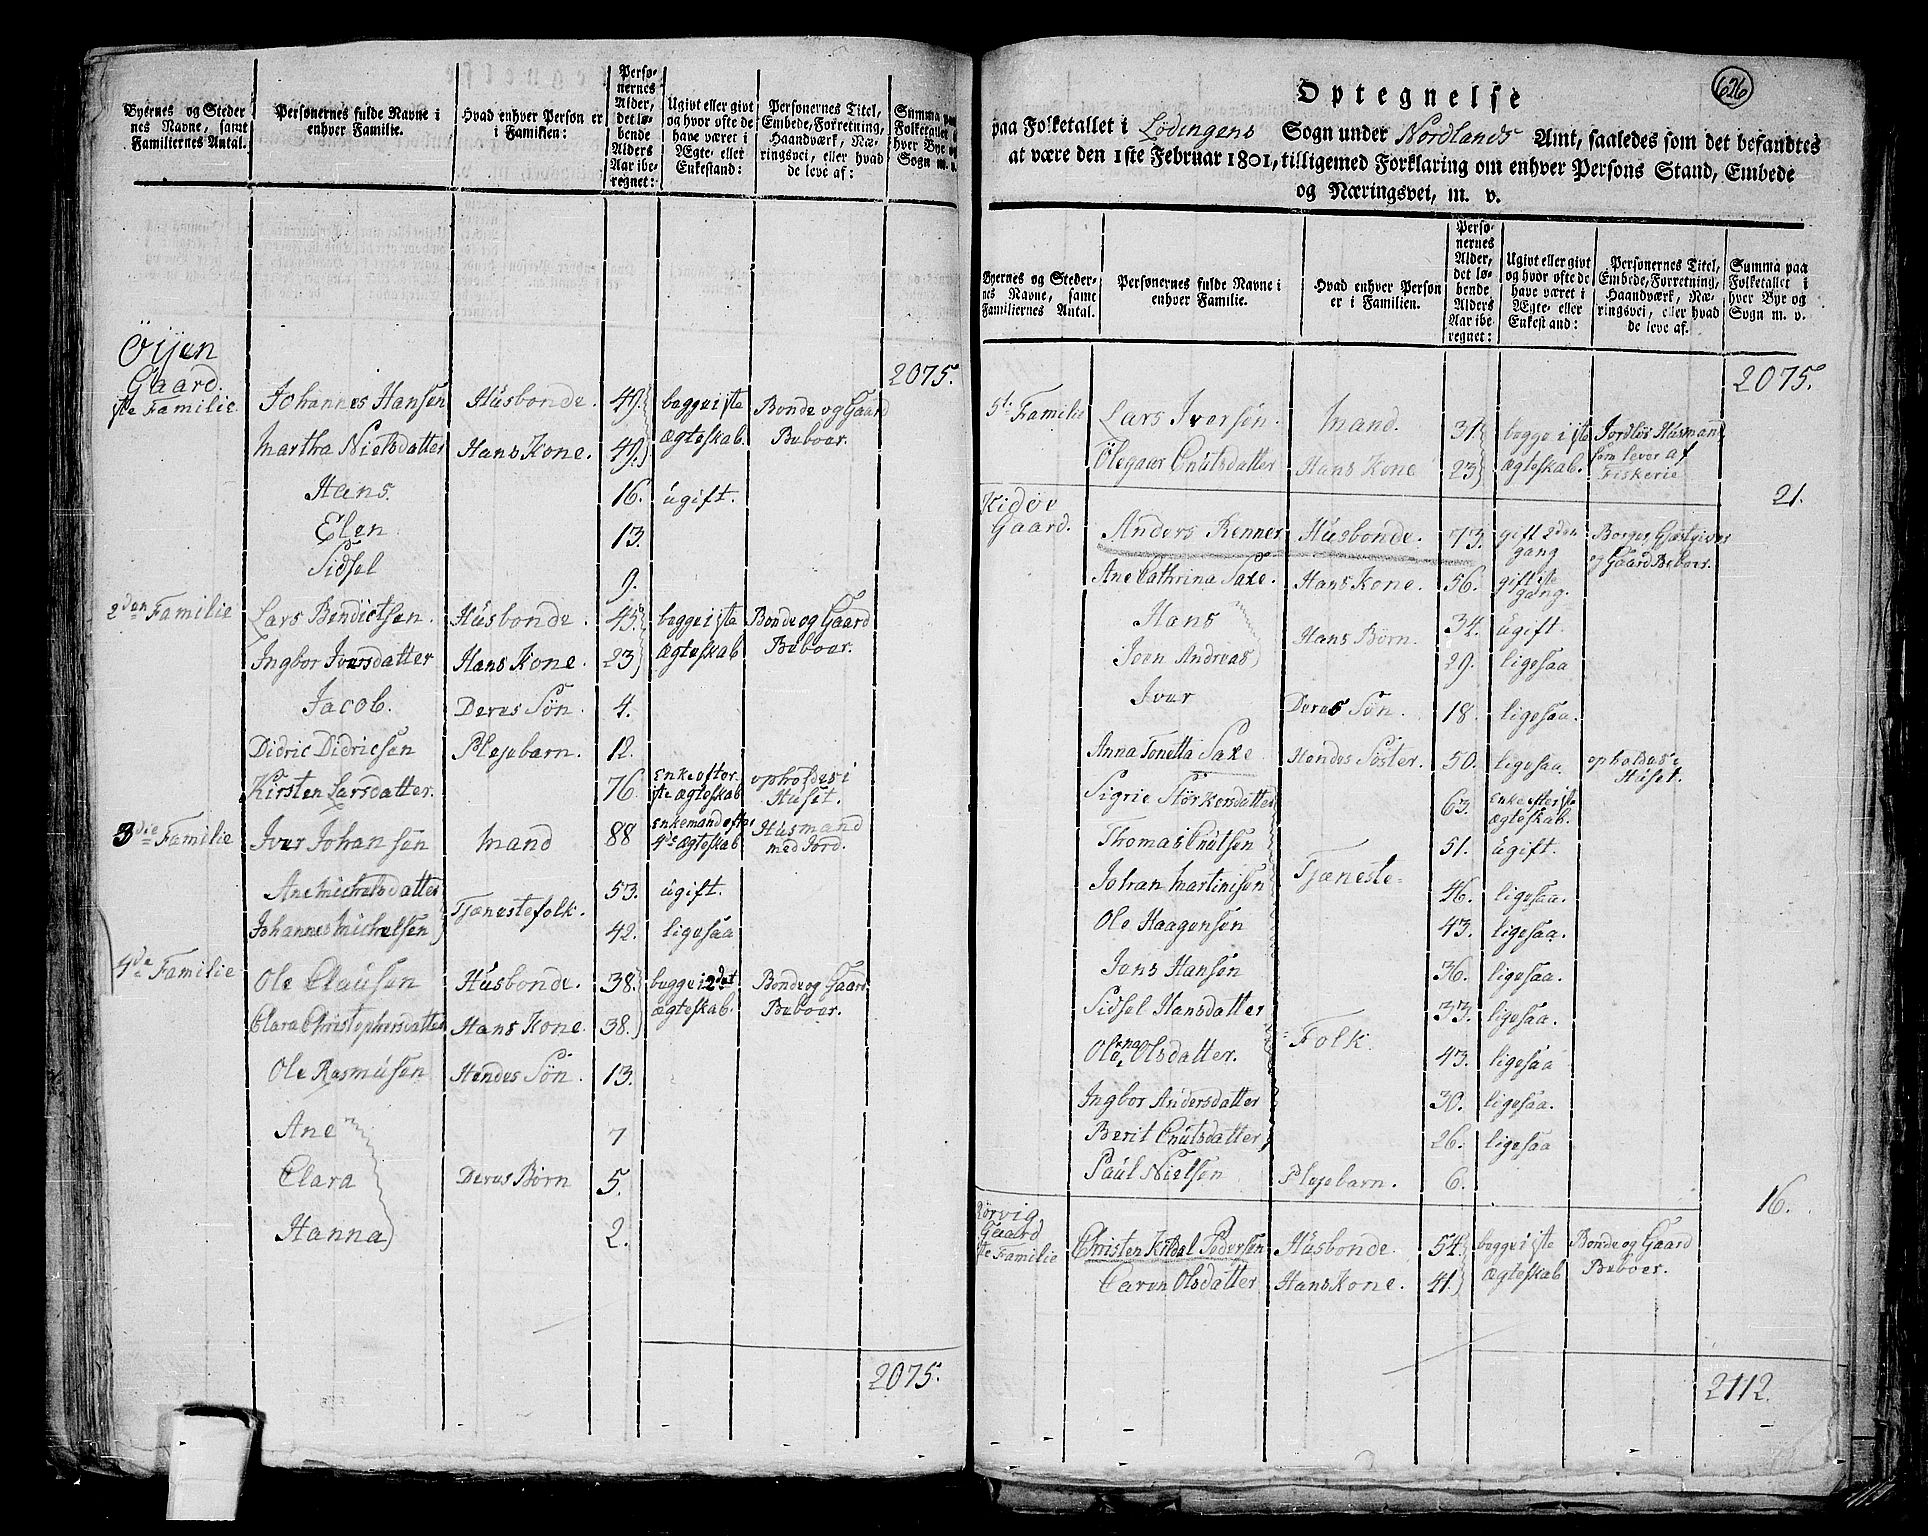 Byernes og Steder
nes Navne, samt
Familiernes Antal.
Personernes fulde Navne i
enhver Familie.
Hvad enhver Person er
i Familien:
Perso-
nernes
Alder,
det lø-
bende
Alders
Aar ibe-
regnet:
Ugivt eller givt
og hvor ofte de
have været i
Ægte- eller
Enkestand:
Personernes Titel,
Embede, Forretning,
Haandværk, Næ-
ringsvei, eller hvad
de leve af:
Summa paa
Folketallet i
hver Bye og
Sogn m. v.
Öijen
Gaard. 2075.
1te Familie Johannes Hansen Husbonde. 49. begge i 1te Bonde og Gaard
Martha Nielsdatter Hans Kone. 49. ægteskab. Beboer.
Hans 16. ugift.
Elen 13.
Sidsel 9.
2den Familie Lars Bendictsen. Husbonde. 45. begge i 1te Bonde og Gaard
Ingbor Iversdatter Hans Kone. 23 ægteskab Beboer.
Jacob. Deres Søn. 4.
Didric Didricsen Plejebarn. 12.
Kirsten Larsdatter. 76. Enke efter 1te ægteskab opholdes i Huset.
3die Familie Iver Johansen Mand 88 Enkemand efter 4de ægteskab Husmand med Jord.
Ane Michelsdatter Tjenestefolk. 53. ugift.
Johannes Michelsen 42. ligesaa
4de Familie Ole Clausen Husbonde. 38. begge i 2det Bonde og Gaard
Clara Christophersdatter Hans Kone. 38. ægteskab. Beboer.
Ole Rasmusen Hendes Søn. 13.
Ane 7
Clara Deres Børn 5.
Hanna 2.
2075.
626
Optegnelse
paa Folketallet i Lødingens Sogn under Nordlands Amt, saaledes som det befandtes
at være den 1ste Februar 1801, tilligemed Forklaring om enhver Persons Stand, Embede
og Næringsvei, m. v.
Byernes og Steder-
nes Navne, samt
Familiernes Antal.
Personernes fulde Navne i
enhver Familie.
Hvad enhver Person
er i Familien.
Perso-
nernes
Alder,
det lø-
bende
Alders
Aar ibe-
regnet:
Ugivt eller givt
og hvor ofte de
have været i
Ægte- eller
Enkestand:
Personernes Titel,
Embede, Forretning,
Haandværk, Næ-
ringsvei, eller hvad
de leve af.
Summa paa
Folketallet i
hver Bye og
Sogn m. v.
2075.
5te Familie Lars Iversen. Mand. 31. begge i 1te Jordløs Husmand
Olegaar Cnutsdatter Hans Kone 23 ægteskab. som lever af Fiskerie
21.
Kidøe
Gaard. Anders Renner Husbonde. 73. gift 2den gang Borger Gjæstgiver og Gaard Beboer.
Ane Cathrina Saxe. Hans Kone. 56. gift 1te gang.
Hans Hans Børn. 34. ugift.
Joen Andreas 29. ligesaa
Iver Deres Søn. 18. ligesaa.
Anna Tonetta Saxe Hendes Søster. 50. ligesaa. opholdes i Huset.
Sigrie Störkersdatter 63. Enke efter 1te ægteskab.
Thomas Cnutsen 51. ugift.
Johan Martinisen Tjeneste- 46. ligesaa.
Ole Haagensen 43. ligesaa.
Jens Hansen 36. ligesaa.
Sidsel Hansdatter 33. ligesaa.
Olena Olsdatter. -Folk. 43. ligesaa
Ingbor Andersdatter 30. ligesaa.
Berit Cnutsdatter 26. ligesaa
Paul Nielsen Plejebarn. 6.
16.
Rörvig
Gaard
1te Familie Christen Kildal Pedersen Husbonde. 54. begge i 1te Bonde og Gaard
Caren Olsdatter Hans Kone. 41. ægteskab Beboer.
2112.